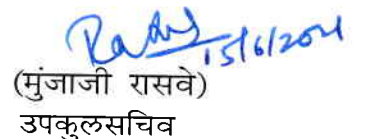 15/6/2021
(मुंजाजी रासवे)
उपकुलसचिव